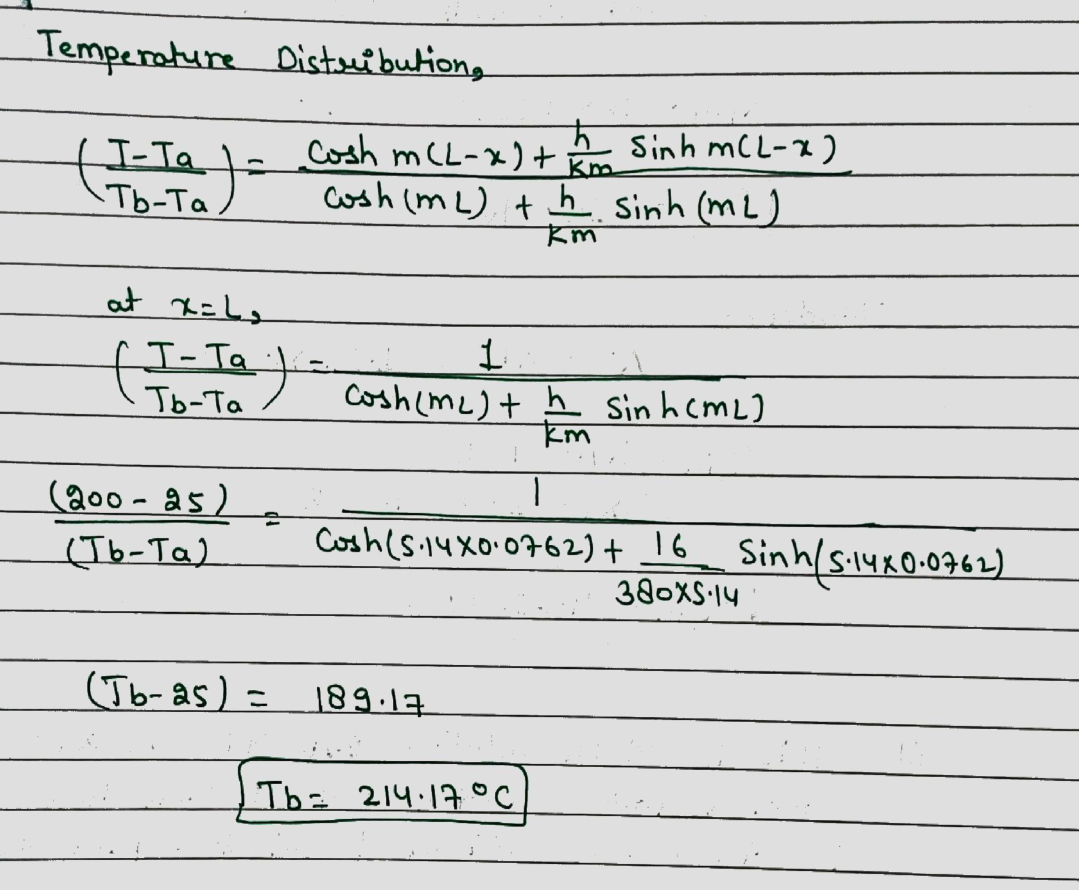 Temperature Distribution,
(T-Ta / Tb-Ta) = (Cosh m(L-x) + h/km Sinh m(L-x)) / (Cosh (mL) + h/km . Sinh (mL))
at x=L,
(T-Ta / Tb-Ta) = 1 / (Cosh(mL) + h/km Sinh(mL))
(200-25) / (Tb-Ta) = 1 / (Cosh(5.14x0.0762) + 16/380x5.14 Sinh(5.14x0.0762))
(Tb-25) = 189.17
Tb = 214.17 °C